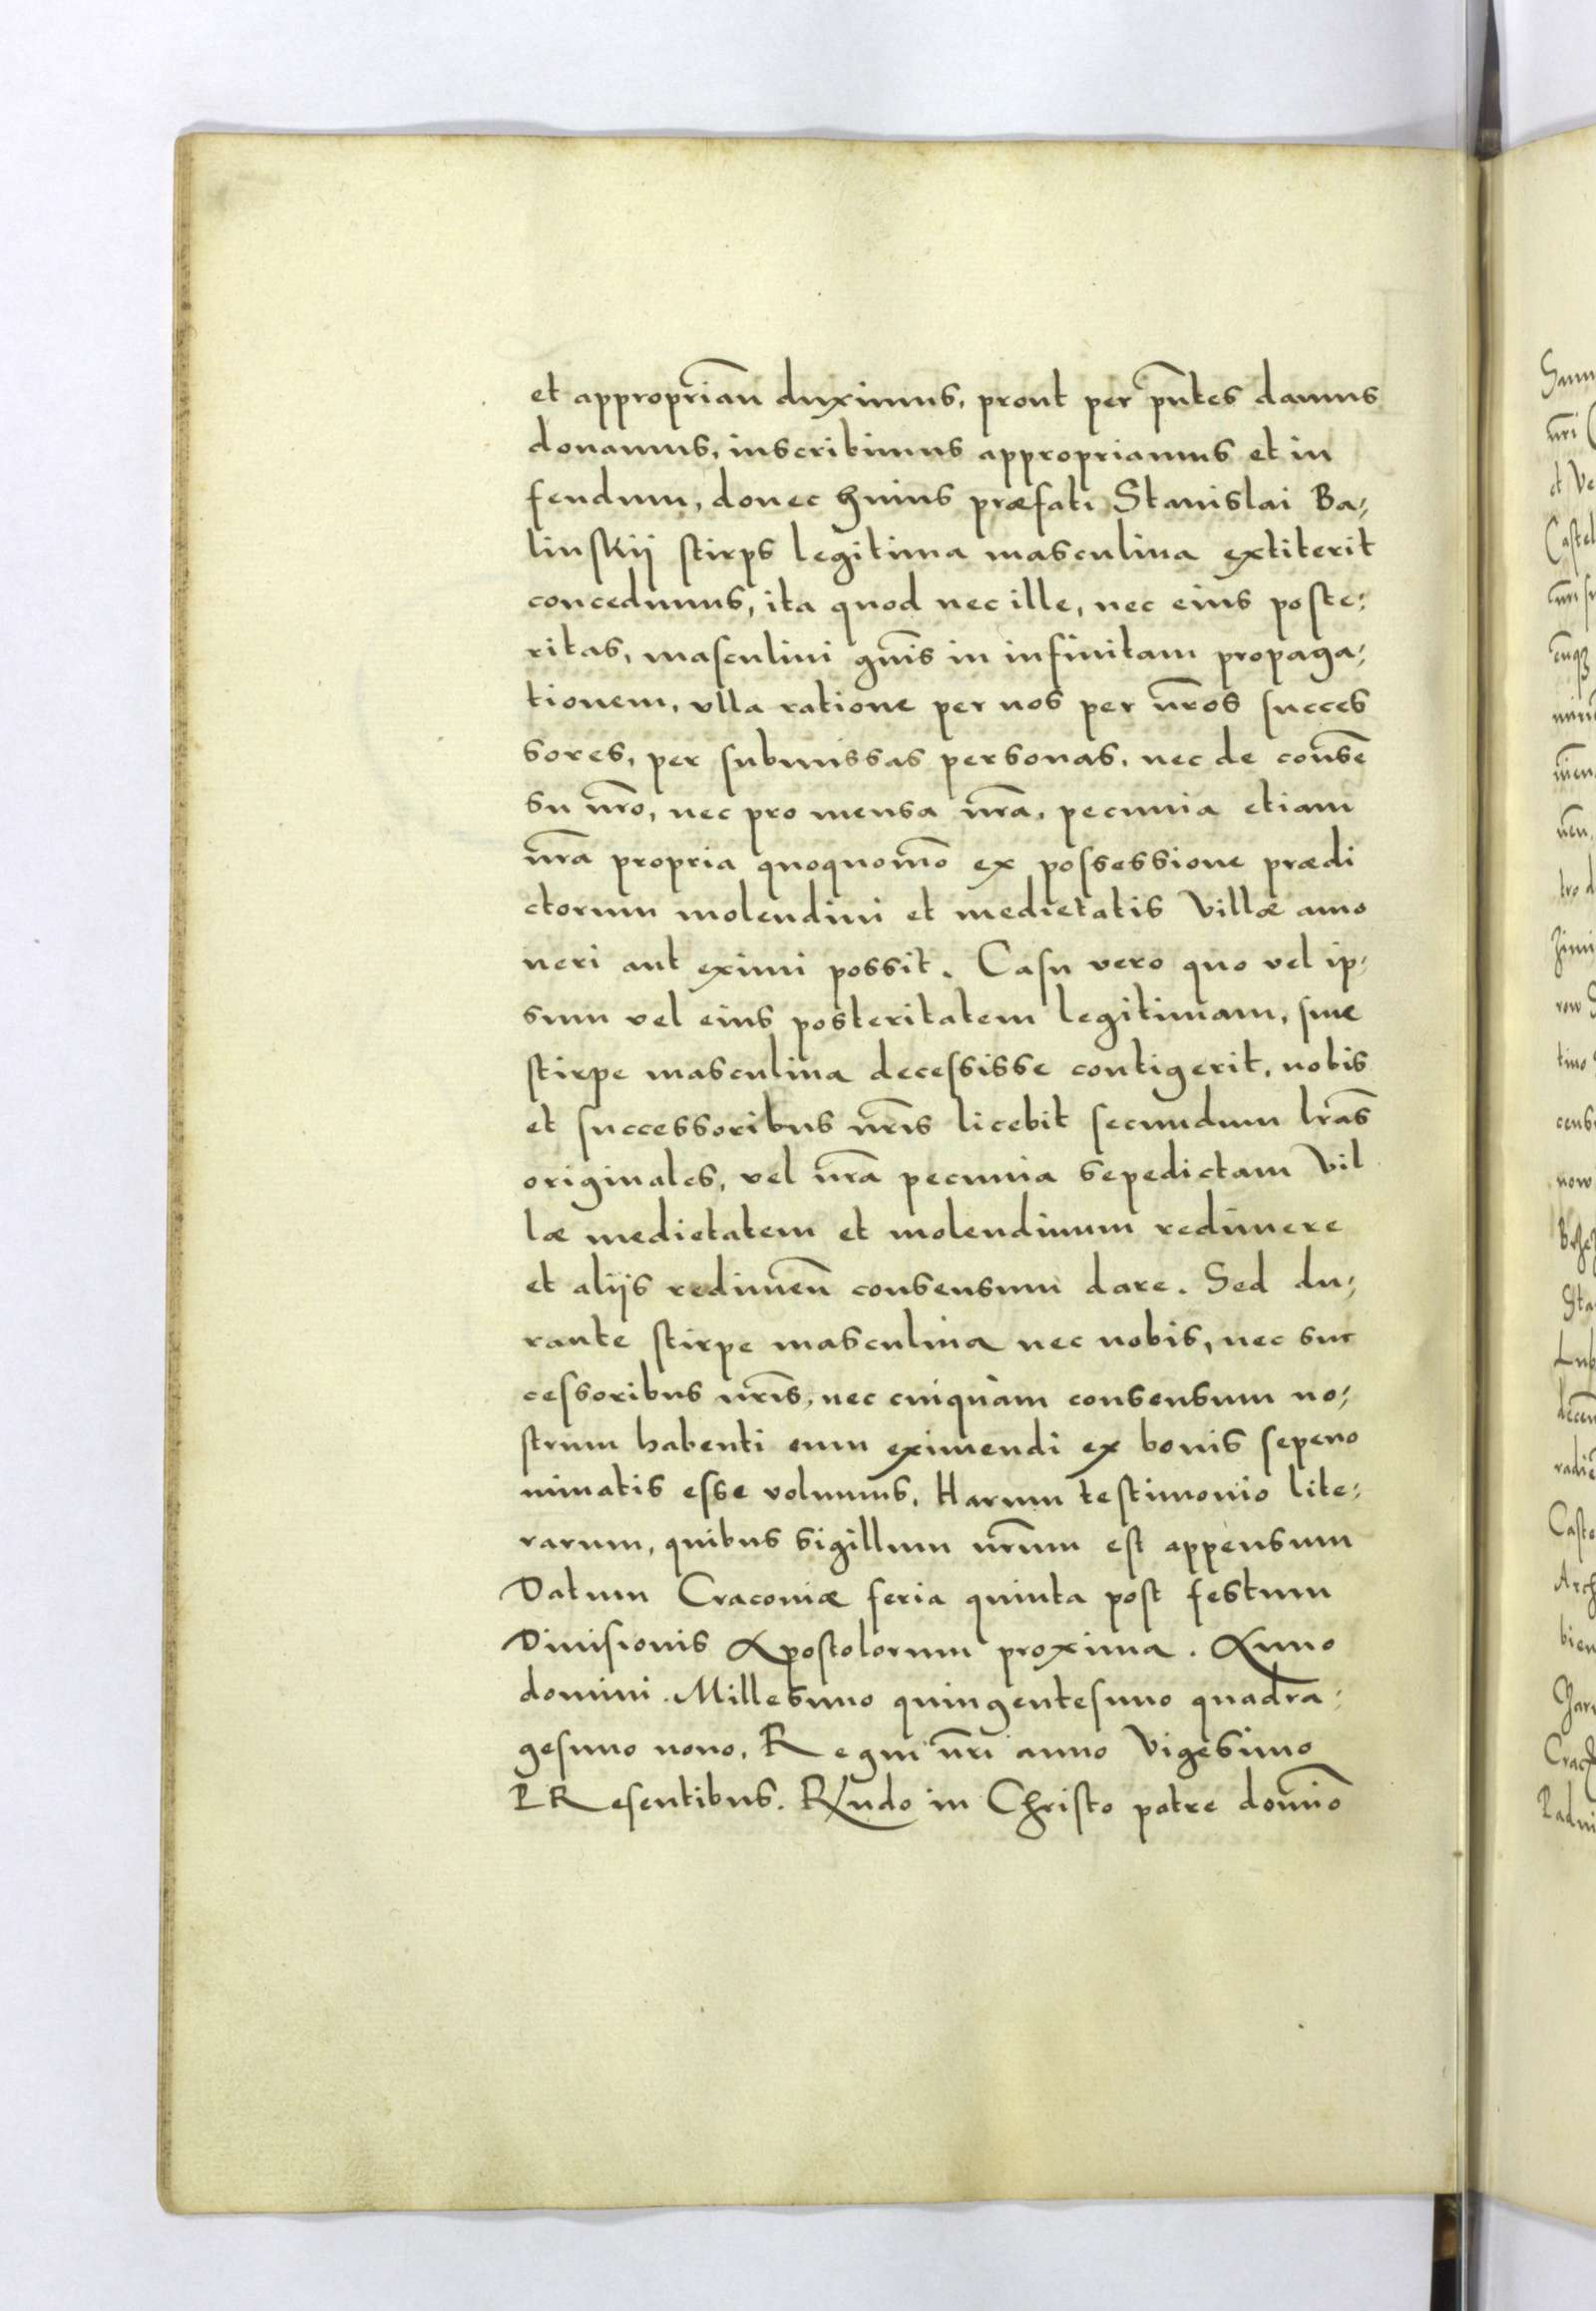 et appropriañ duximus, prout per pn̄tes damus
donamus, inscribimus appropriamus et in
feudum, donec huius præfati Stanislai Ba;
linskij stirps legitima masculina extiterit
concedimus, ita quod nec ille, nec eius poste;
ritas, masculini gn̄is in infinitam propaga;
tionem, vlla ratione per nos per nr̄os succes
sores, per submissas personas, nec de consē
su nr̄o, nec pro mensa nr̄a, pecunia etiam
nr̄a propria quoquomō ex possessione prædi
ctorum molendini et medietatis villæ amo
ueri aut eximi possit. Casu vero quo vel ip;
sum vel eius posteritatem legitimam, sine
stirpe masculina decessisse contigerit, nobis
et successoribus nr̄is licebit secundum lr̄as
originales, vel nr̄a pecunia sepedictam vil
læ medietatem et molendinum redimere
et alijs redimeñ consensum dare. Sed du;
rante stirpe masculina nec nobis, nec suc
cessoribus nr̄is, nec cuiquam consensum no;
strum habenti eum eximendi ex bonis sepeno
minatis esse volumus. Harum testimonio lite;
rarum, quibus sigillum nr̄um est appensum
Datum Cracouiæ feria quinta post festum
Diuisionis Apostolorum proxima. Anno
domini. Millesimo quingentesimo quadra;
gesimo nono, Regni nr̄i anno vigesimo
PResentibus. Rṇdo in Christo patre domīo